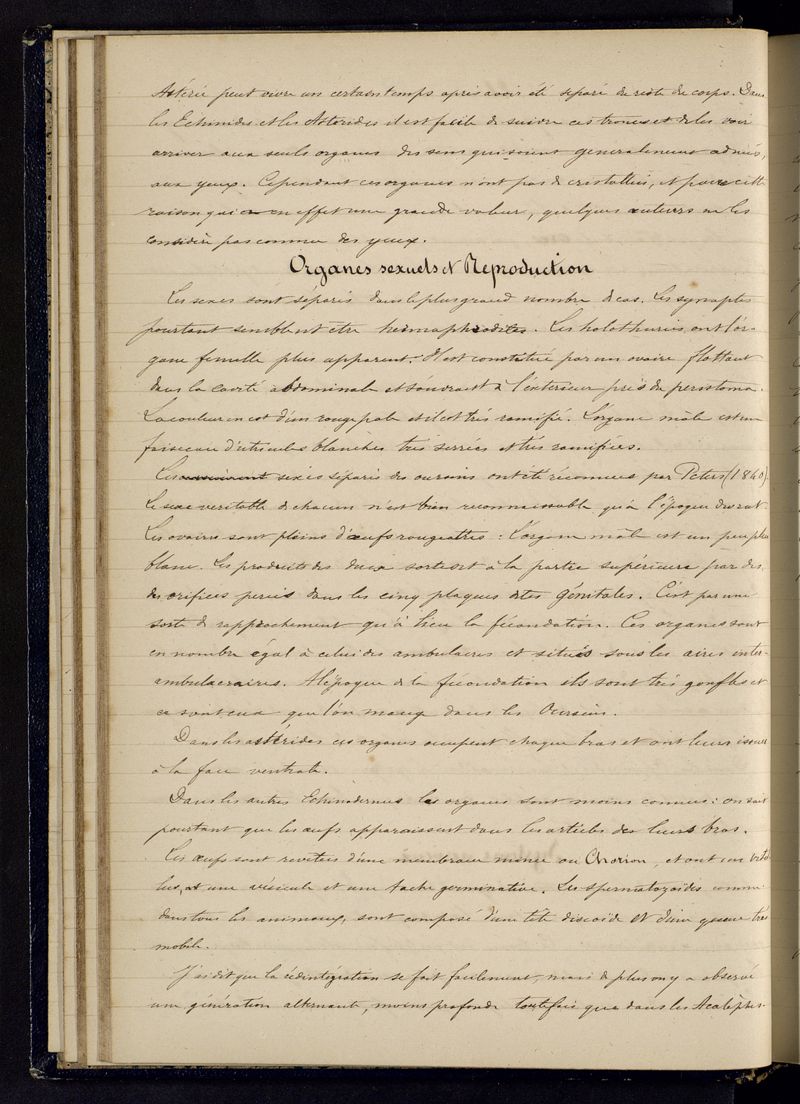 Astérie peut vivre un certain temps après avoir été separé du reste du corps. Dans
les Echinides et les Astérides il est facile de suivre ces troncs et de les voir
arriver aux seuls organes des sens qui soient generalement admis,
aux yeux. Cependant ces organes n'ont pas de cristallin, et pour cette
raison qui a en effet une grande valeur, quelques auteurs ne les
considère pas comme des yeux.
Organes sexuels et Reproduction
Les sexes sont séparés dans le plus grand nombre de cas. Les synaptes
pourtant semblent être hermaphrodites. Les holothuries ont l'or-
gane femelle plus apparent. Il est constitué par un ovaire flottant
dans la cavité abdominale et s'ouvrant à l'exterieur près du peristoma.
La couleur en est d'un rouge pale et il est très ramifié. L'organe mâle est un
faisceau d'utricules blanches très serrées et très ramifiées.
Les sexes séparés des oursins ont été reconnus par Peters (1840).
Le sexe veritable de chacun n'est bien reconnaissable qu'à l'époque du rut.
Les ovaires sont pleins d'œufs rougeatres : l'organe mâle est un peu plus
blanc. Les produits des deux sortent à la partie supérieure par des
des orifices percés dans les cinq plaques dites génitales. C'est par une
sorte de rapprochement qu'à lieu la fécondation. Ces organes sont
en nombre égal à celui des ambulacres et situés sous les aires inter-
ambulacraires. A l'époque de la fécondation ils sont très gonflés et
ce sont eux que l'on mange dans les Oursins.
Dans les astérides ces organes occupent chaque bras et ont leurs issues
à la face ventrale.
Dans les autres Echinodermes les organes sont moins connus : on sait
pourtant que les œufs apparaissent dans les articles des leurs bras.
Les œufs sont revêtus d'une membrane mince ou Chorion, et ont un vitel-
lus, et une vésicule et une tache germinative. Les spermatozoides comme
dans tous les animaux, sont composé d'une tête discoide et d'une queue très
mobile.
J'ai dit que la rédintégration se fait facilement, mais de plus on y a observé
une génération alternante, moins profonde toutefois que dans les Acalèphes